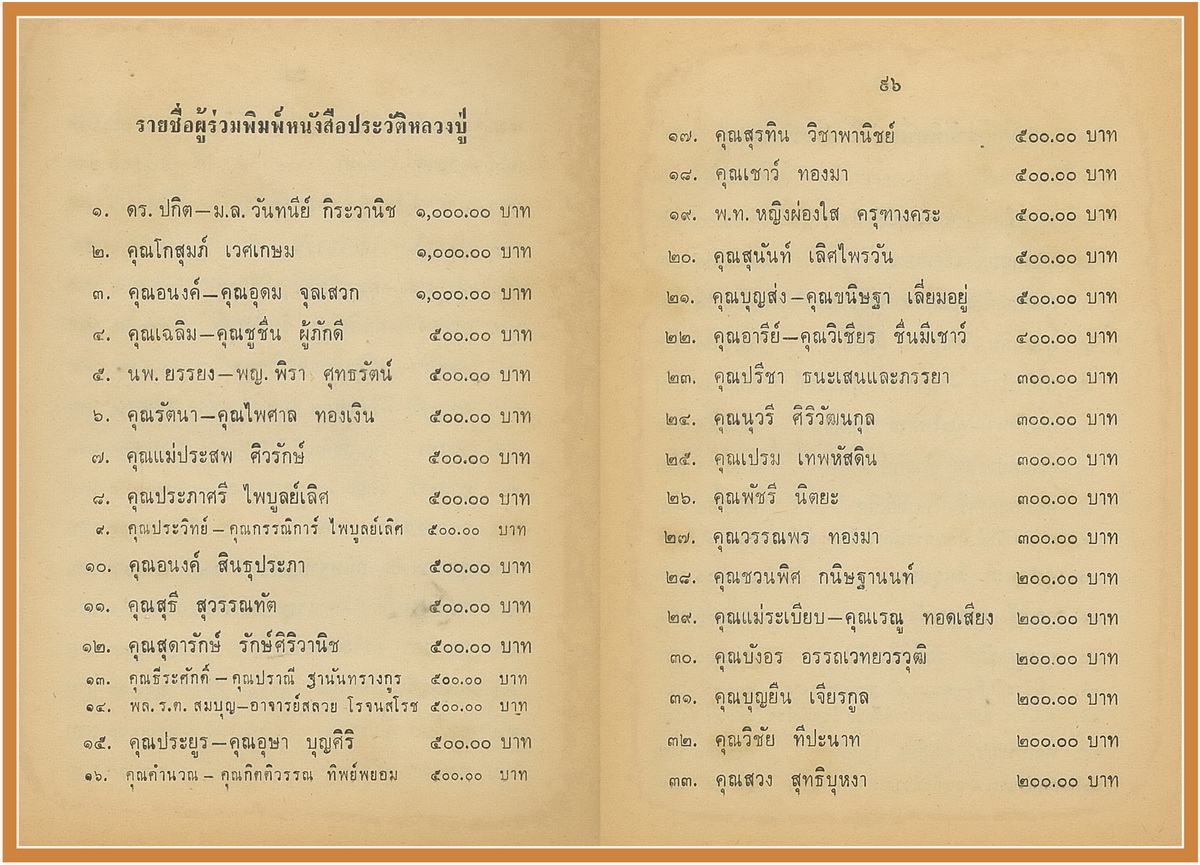 รายชื่อผู้ร่วมพิมพ์หนังสือประวัติหลวงปู่
๑. ดร. ปกิต—ม.ล. วันทนีย์ กิระวานิช ๑,๐๐๐.๐๐ บาท
๒. คุณโกสุมภ์ เวศเกษม ๑,๐๐๐.๐๐ บาท
๓. คุณอนงค์—คุณอุดม จุลเสวก ๑,๐๐๐.๐๐ บาท
๔. คุณเฉลิม—คุณชูชื่น ผู้ภักดี ๕๐๐.๐๐ บาท
๕. นพ. ยรรยง—พญ. พิรา ศุทธรัตน์ ๕๐๐.๐๐ บาท
๖. คุณรัตนา—คุณไพศาล ทองเงิน ๕๐๐.๐๐ บาท
๗. คุณแม่ประสพ ศิวรักษ์ ๕๐๐.๐๐ บาท
๘. คุณประภาศรี ไพบูลย์เลิศ ๕๐๐.๐๐ บาท
๙. คุณประวิทย์ – คุณกรรณิการ์ ไพบูลย์เลิศ ๕๐๐.๐๐ บาท
๑๐. คุณอนงค์ สินธุประภา ๕๐๐.๐๐ บาท
๑๑. คุณสุธี สุวรรณทัต ๕๐๐.๐๐ บาท
๑๒. คุณสุดารักษ์ รักษ์ศิริวานิช ๕๐๐.๐๐ บาท
๑๓. คุณธีระศักดิ์ – คุณปราณี ฐานันทรางกูร ๕๐๐.๐๐ บาท
๑๔. พล.ร.ต. สมบุญ—อาจารย์สลวย โรจนสโรช ๕๐๐.๐๐ บาท
๑๕. คุณประยูร—คุณอุษา บุญศิริ ๕๐๐.๐๐ บาท
๑๖. คุณคำนวณ – คุณกิตติวรรณ ทิพย์พยอม ๕๐๐.๐๐ บาท
๙๖
๑๗. คุณสุรทิน วิชาพานิชย์ ๕๐๐.๐๐ บาท
๑๘. คุณเชาว์ ทองมา ๕๐๐.๐๐ บาท
๑๙. พ.ท. หญิงผ่องใส ครุฑางคระ ๕๐๐.๐๐ บาท
๒๐. คุณสุนันท์ เลิศไพรวัน ๕๐๐.๐๐ บาท
๒๑. คุณบุญส่ง—คุณขนิษฐา เลี่ยมอยู่ ๕๐๐.๐๐ บาท
๒๒. คุณอารีย์—คุณวิเชียร ชื่นมีเชาว์ ๔๐๐.๐๐ บาท
๒๓. คุณปรีชา ธนะเสนและภรรยา ๓๐๐.๐๐ บาท
๒๔. คุณนุวรี ศิริวัฒนกุล ๓๐๐.๐๐ บาท
๒๕. คุณเปรม เทพหัสดิน ๓๐๐.๐๐ บาท
๒๖. คุณพัชรี นิตยะ ๓๐๐.๐๐ บาท
๒๗. คุณวรรณพร ทองมา ๓๐๐.๐๐ บาท
๒๘. คุณชวนพิศ กนิษฐานนท์ ๒๐๐.๐๐ บาท
๒๙. คุณแม่ระเบียบ—คุณเรณู ทอดเสียง ๒๐๐.๐๐ บาท
๓๐. คุณบังอร อรรณเวทยวรวุฒิ ๒๐๐.๐๐ บาท
๓๑. คุณบุญยืน เจียรกูล ๒๐๐.๐๐ บาท
๓๒. คุณวิชัย ทีปะนาท ๒๐๐.๐๐ บาท
๓๓. คุณสวง สุทธิบุหงา ๒๐๐.๐๐ บาท